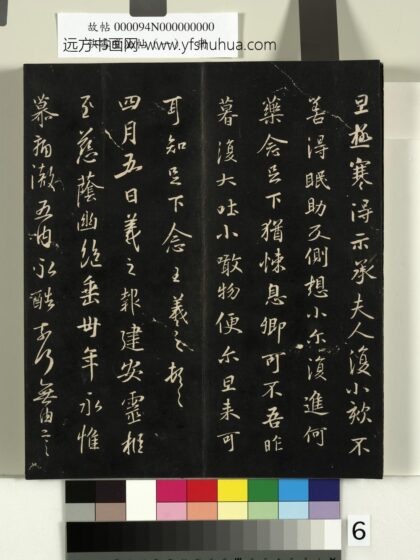 故帖 000094N000000000
远方书画网-www.yfshuhua.com
旦極寒得示承夫人復小欬不
善得眠助反側想小尔復進何
藥念足下猶悚息卿可不吾昨
暮復大吐小噉物便尔旦來可
耳知足下念王羲之頓
四月五日羲之報建安靈柩
至慈蔭幽絕垂卅年永惟
崇慕痛徹五內永酷奈何無由言
6